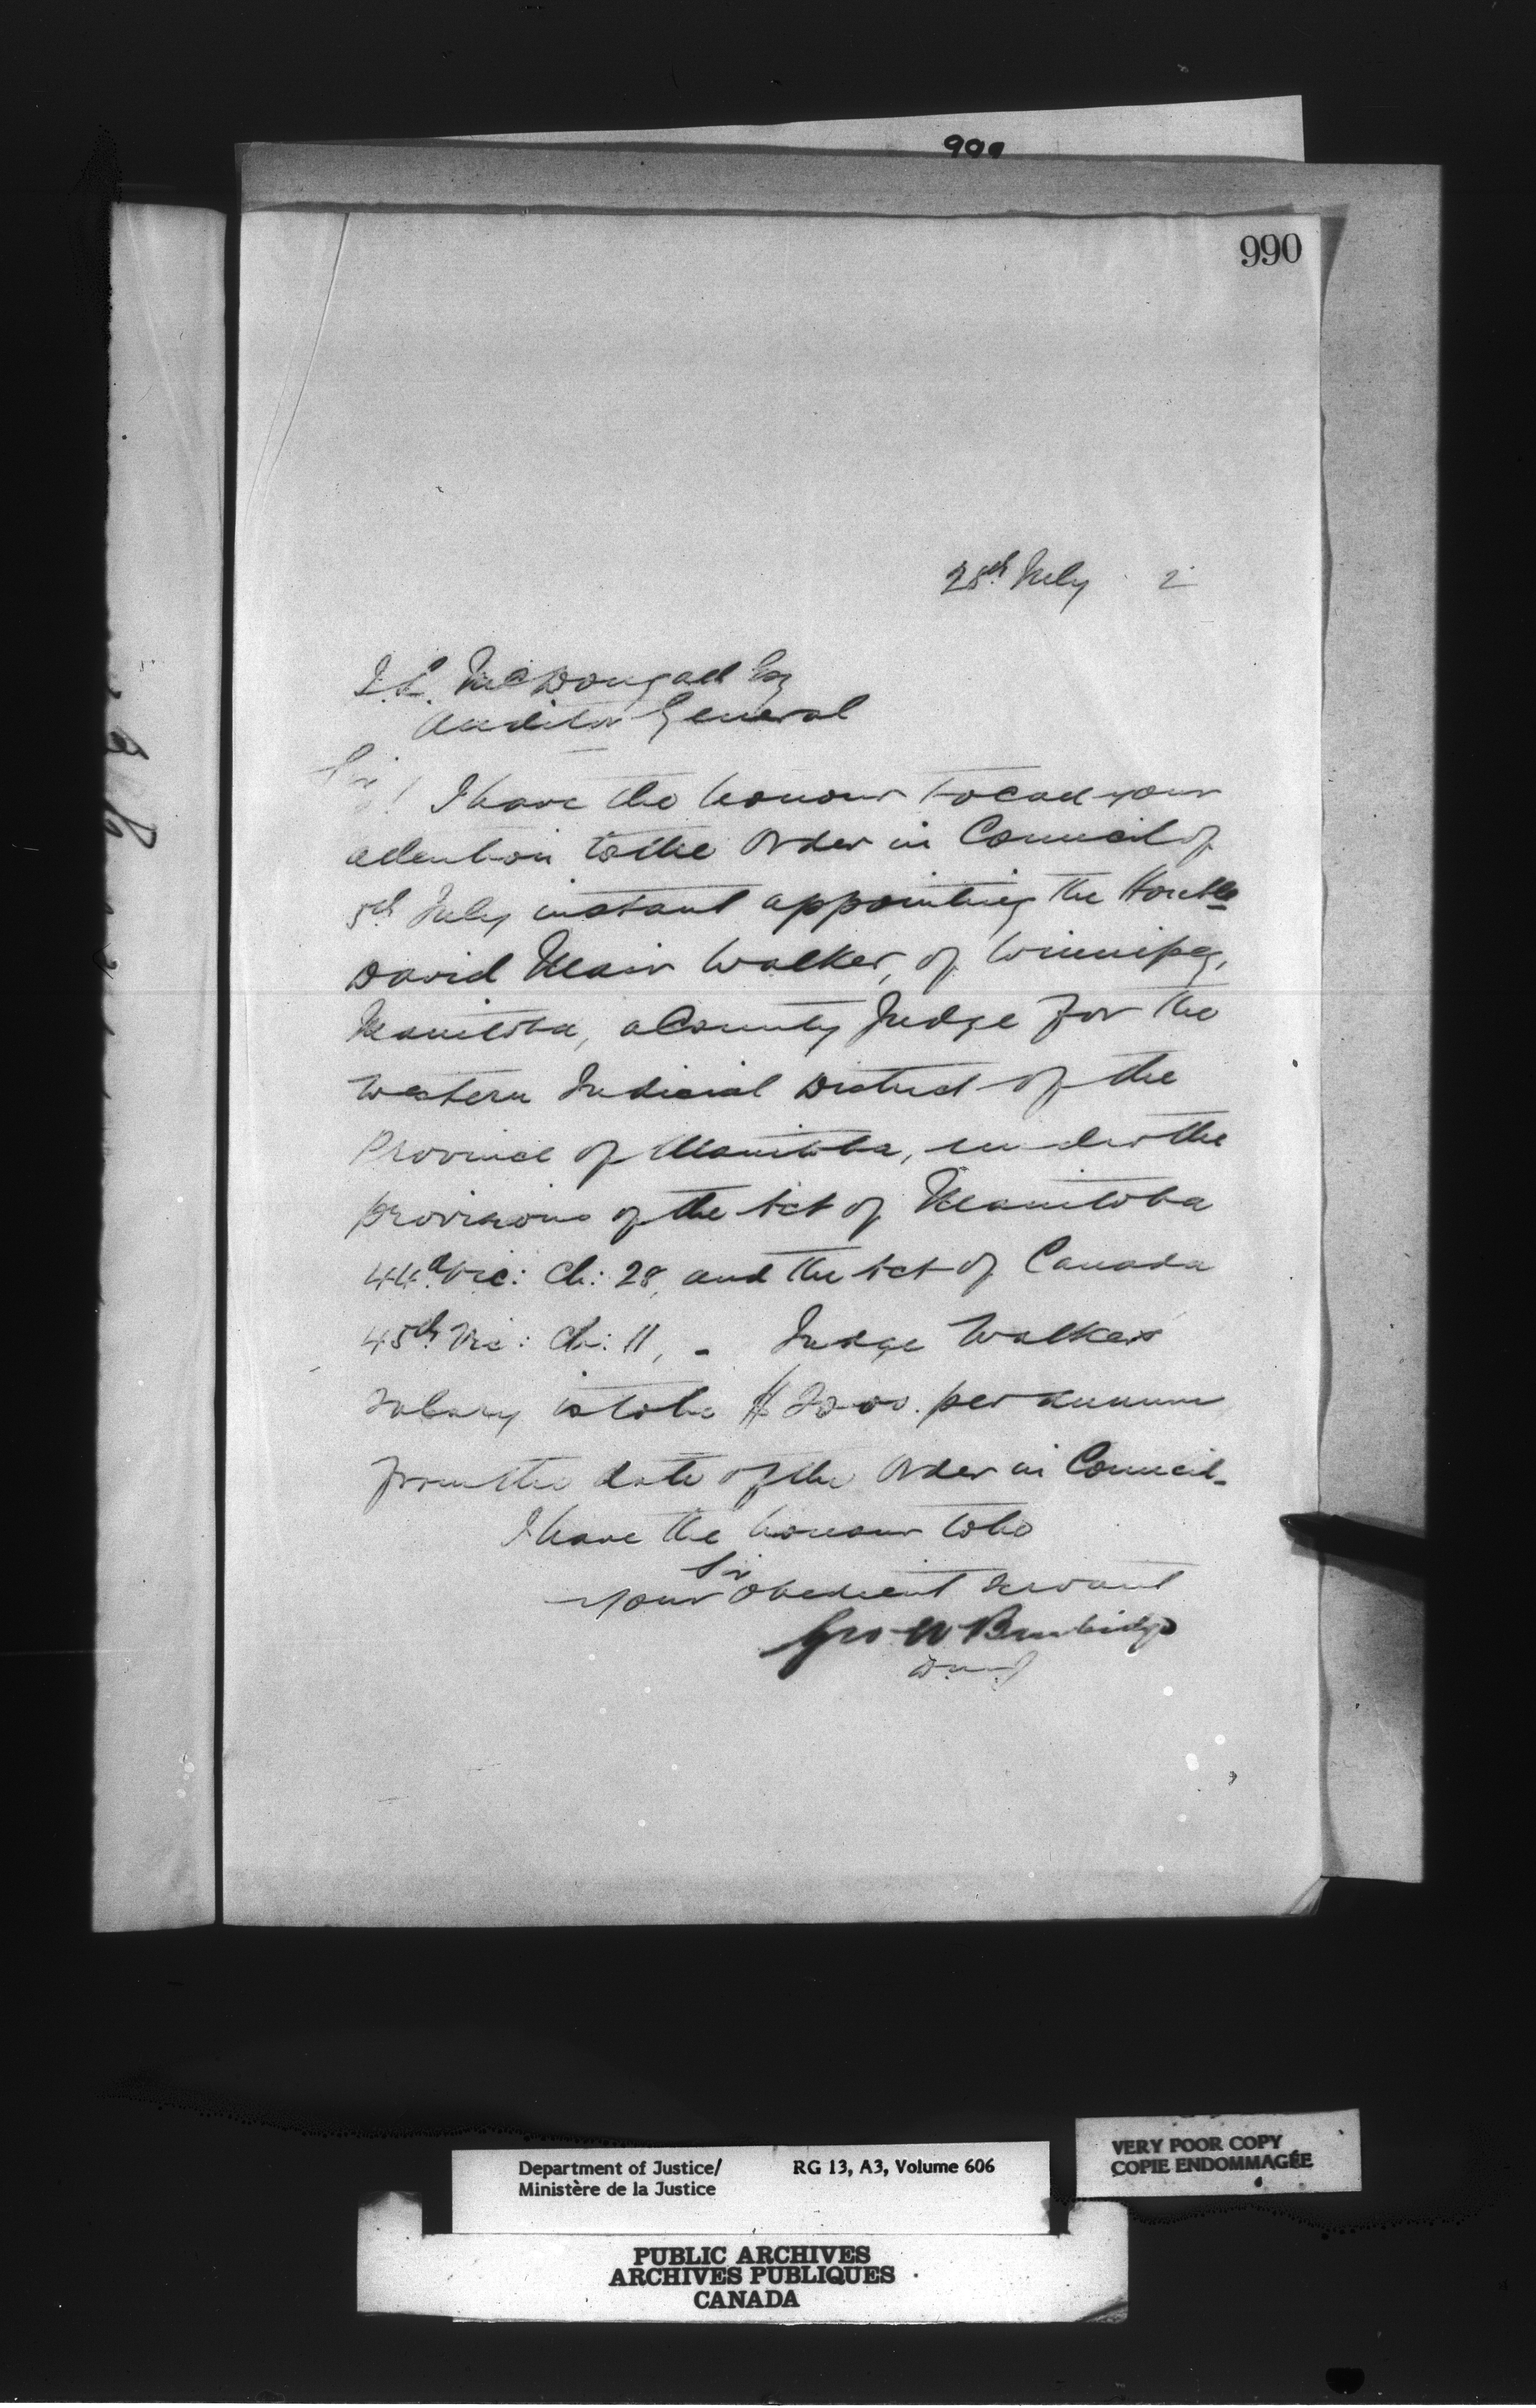 990
990
28th July 2
J.L. McDougall Esq
Auditor General
Sir!
I have the honour to call your
attention to the Order in Council of
5th July instant appointing the Honble
David Marr Walker, of Winnipeg,
Manitoba, a County Judge for the
Western Judicial District of the
Province of Manitoba, under the
provisions of the Act of Manitoba
44th Vic: Ch: 28, and the Act of Canada
45th Vic: Ch: 11, - Judge Walkers
salary is to be $2000. per annum
from the date of the Order in Council-
I have the honour to be
Sir
your obedient servant
Geo W Burbidge
D.M.J.
Department of Justice/
Ministère de la Justice
RG 13, A3, Volume 606
VERY POOR COPY
COPIE ENDOMMAGÉE
PUBLIC ARCHIVES
ARCHIVES PUBLIQUES
CANADA